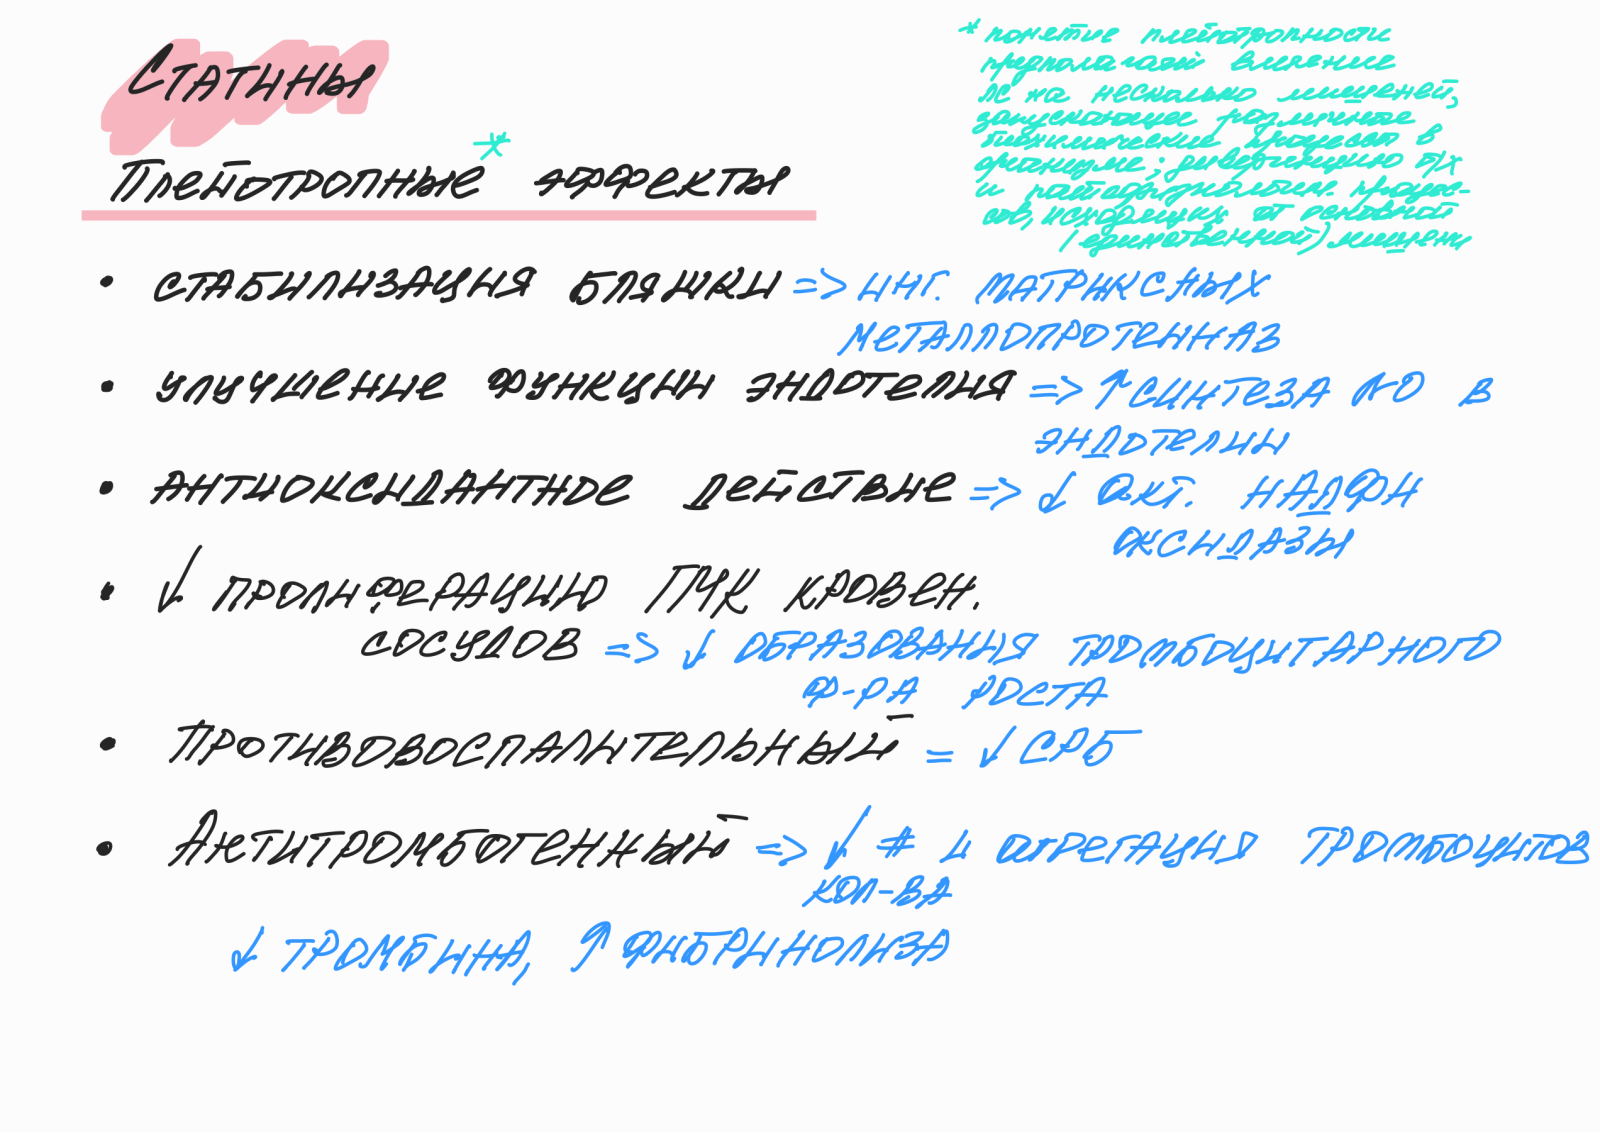 Статины
Плейотропные* эффекты
* понятие плейотропности
предполагает влияние
лс на несколько мишеней,
запускающее различные
биохимические процессы в
организме; дивергенцию б/х
и патофизиологич. процес-
сов, исходящих от основной
(единственной) мишени
• стабилизация бляшки => инг. матриксных
металлопротеиназ
• улучшение функции эндотелия => ↑ синтеза NO в
эндотелии
• антиоксидантное действие => ↓ акт. НАДФН
оксидазы
• ↓ пролиферацию ГМК кровен.
сосудов => ↓ образования тромбоцитарного
ф-ра роста
• Противовоспалительный = ↓ СРБ
• Антитромбогенный => ↓ # и агрегация тромбоцитов
кол-ва
↓ тромбина, ↑ фибринолиза